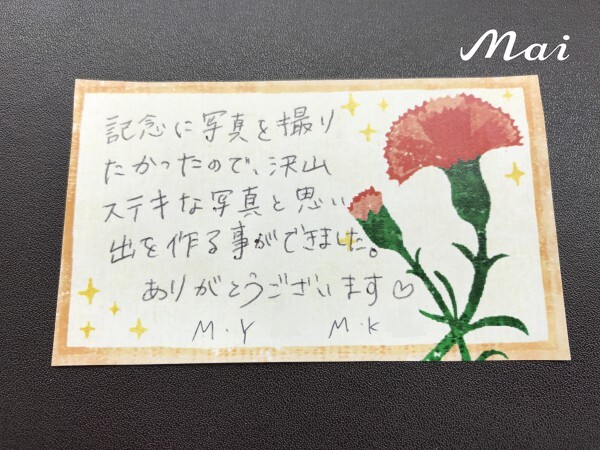 Mai
記念に写真を撮り
たかったので、沢山
ステキな写真と思い
出を作る事ができました。
ありがとうございます♡
M・Y M・K